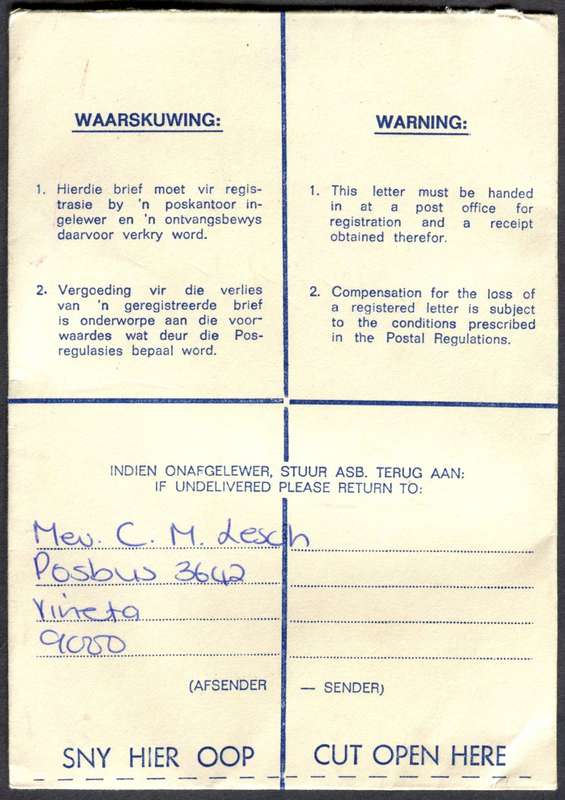 WAARSKUWING:
1. Hierdie brief moet vir regis-
trasie by 'n poskantoor in-
gelewer en 'n ontvangsbewys
daarvoor verkry word.
2. Vergoeding vir die verlies
van 'n geregistreerde brief
is onderworpe aan die voor-
waardes wat deur die Pos-
regulasies bepaal word.
WARNING:
1. This letter must be handed
in at a post office for
registration and a receipt
obtained therefor.
2. Compensation for the loss of
a registered letter is subject
to the conditions prescribed
in the Postal Regulations.
INDIEN ONAFGELEWER, STUUR ASB. TERUG AAN:
IF UNDELIVERED PLEASE RETURN TO:
Mev. C. M. Lesch
Posbus 3642
Vineta
9000
(AFSENDER — SENDER)
SNY HIER OOP CUT OPEN HERE